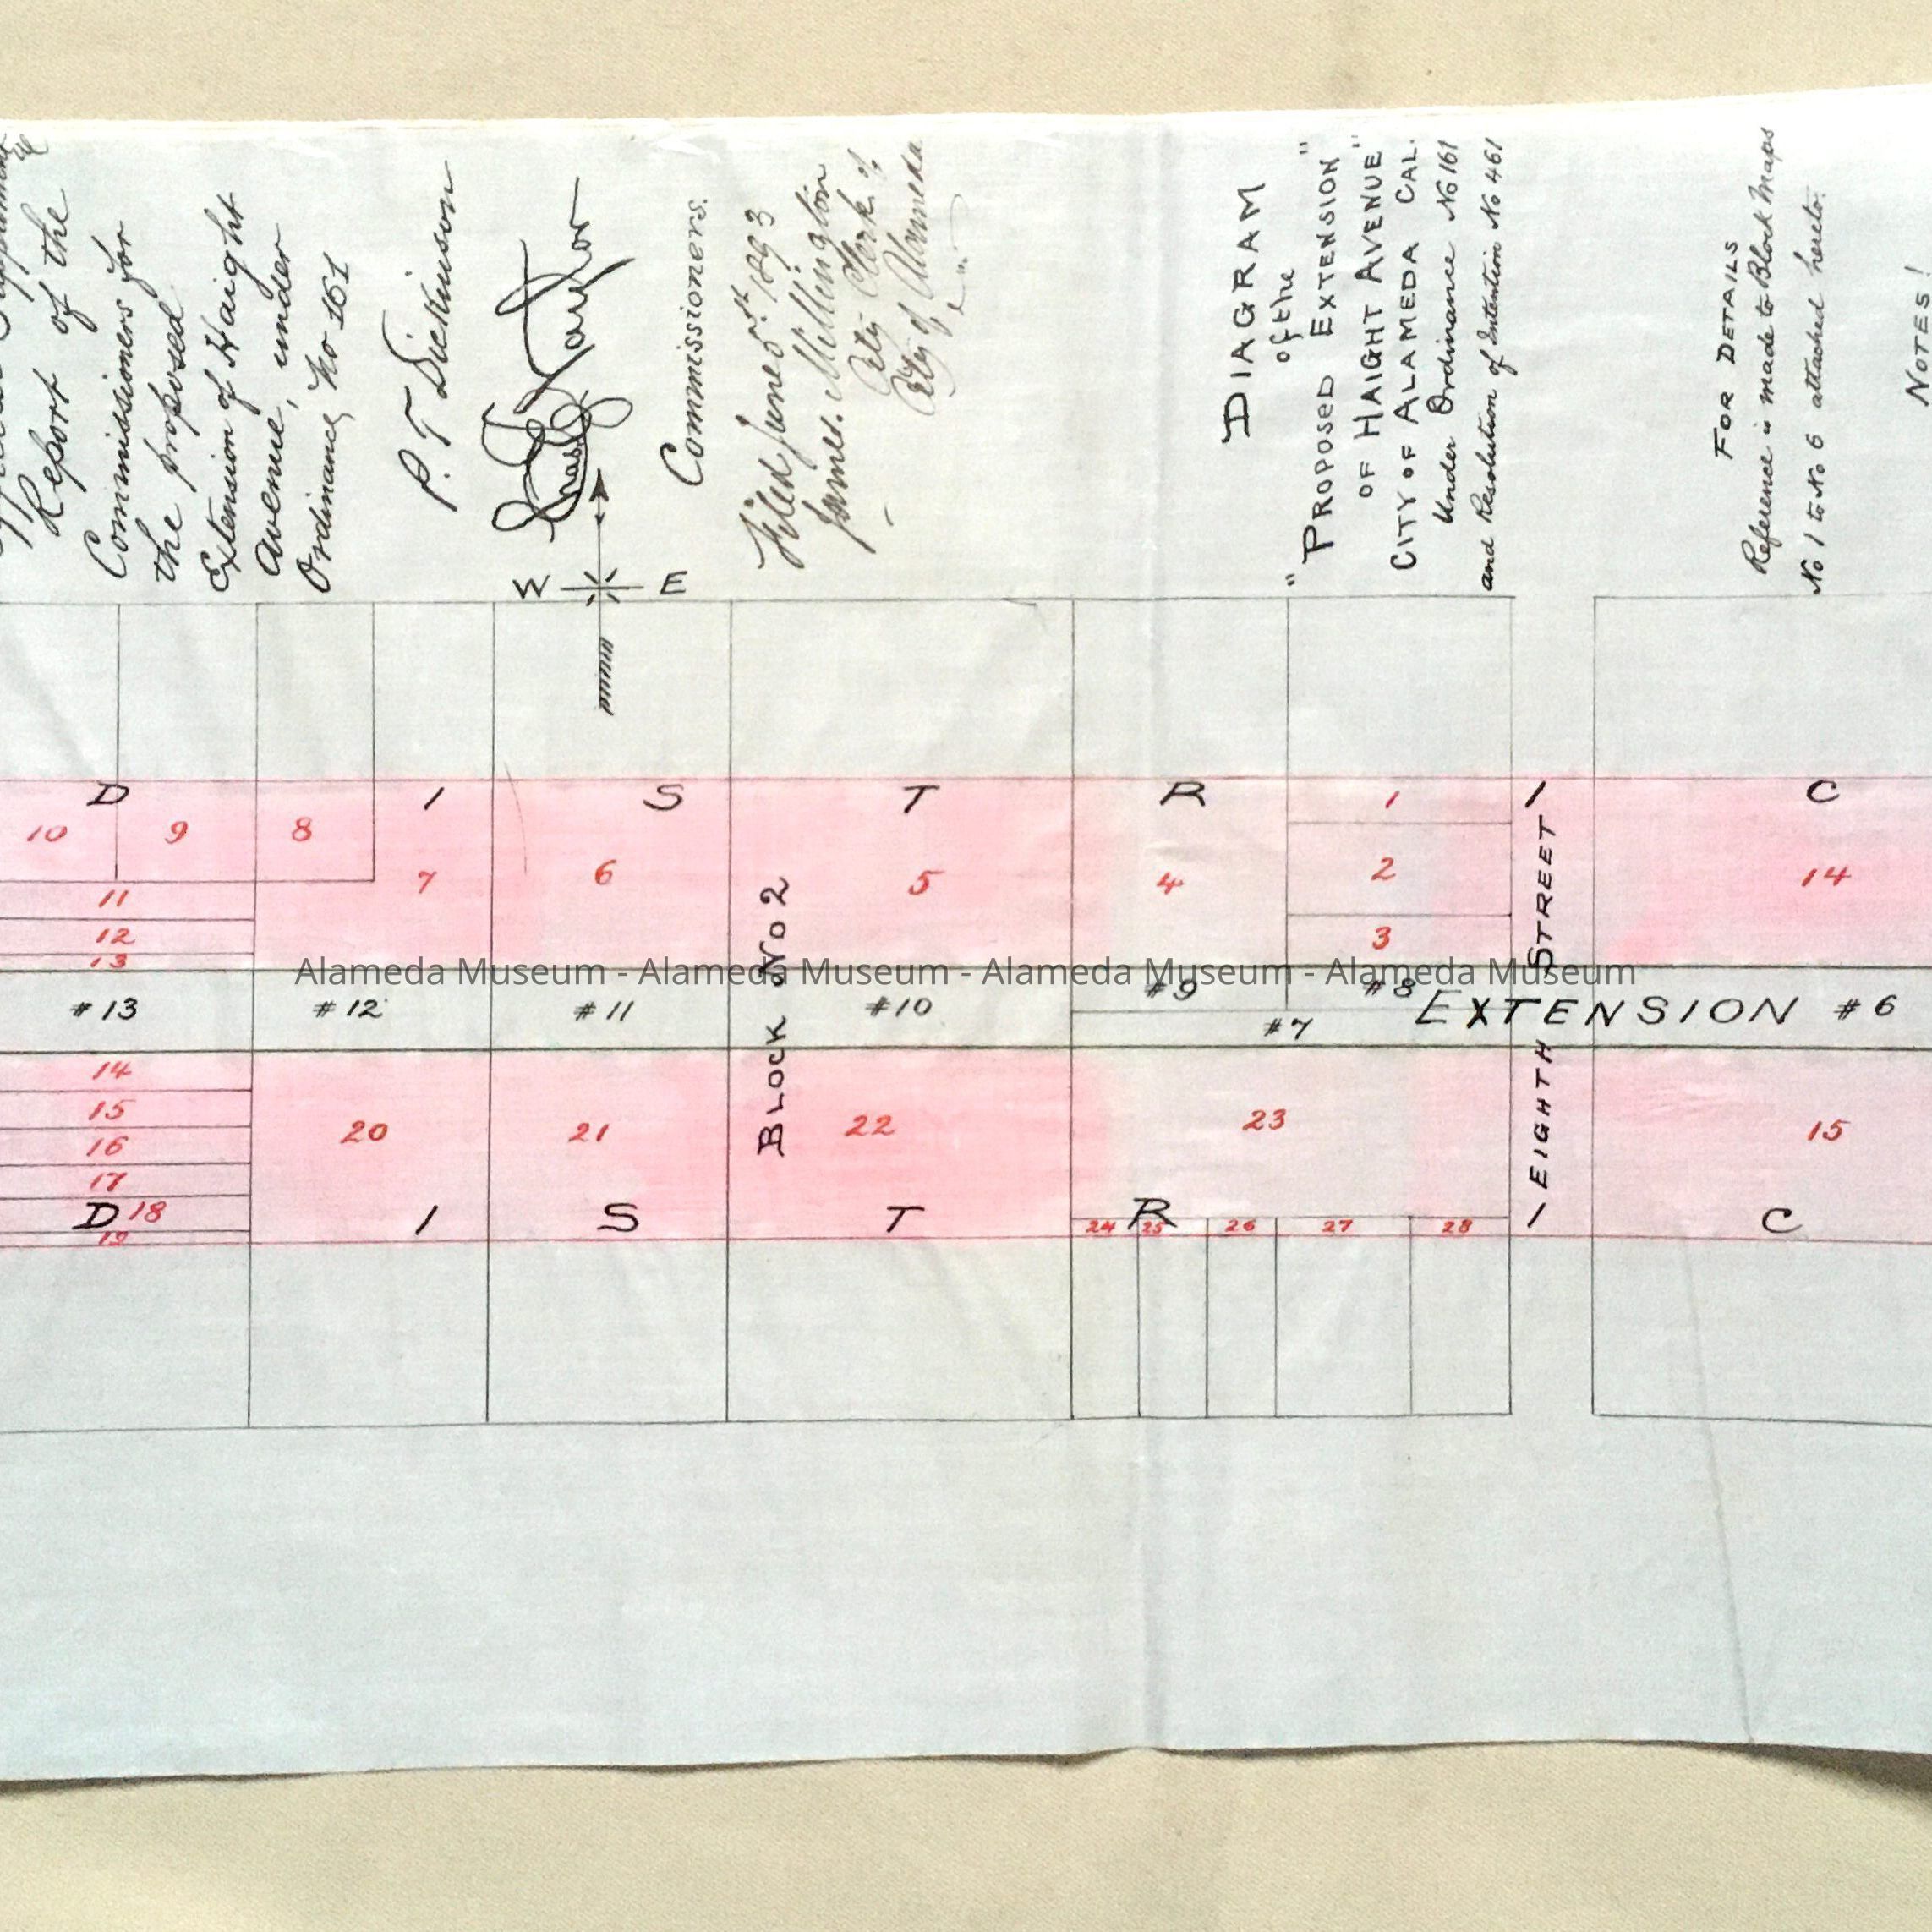 Report of the
Commissioners for
the proposed
Extension of Haight
Avenue, under
Ordinance No 161
P. T. Dickinson
Commissioners.
Filed June 5th 1893
James. Millington
City Clerk of
City of Alameda
W E
DIAGRAM
of the
"PROPOSED EXTENSION"
OF HAIGHT AVENUE"
CITY OF ALAMEDA CAL.
Under Ordinance No 161
and Resolution of Intention No 461
FOR DETAILS
Reference is made to Block Maps
No 1 to No 6 attached hereto.
NOTES!
D I S T R I C
10 9 8 7 6 5 4 1 14
2
3
11
12
13
BLOCK No 2
EIGHTH STREET
#13 #12 #11 #10 #9 #8 EXTENSION #6
#7
14
15
16
17
18
19
20 21 22 23 15
D I S T R I C
24 25 26 27 28
Alameda Museum - Alameda Museum - Alameda Museum - Alameda Museum